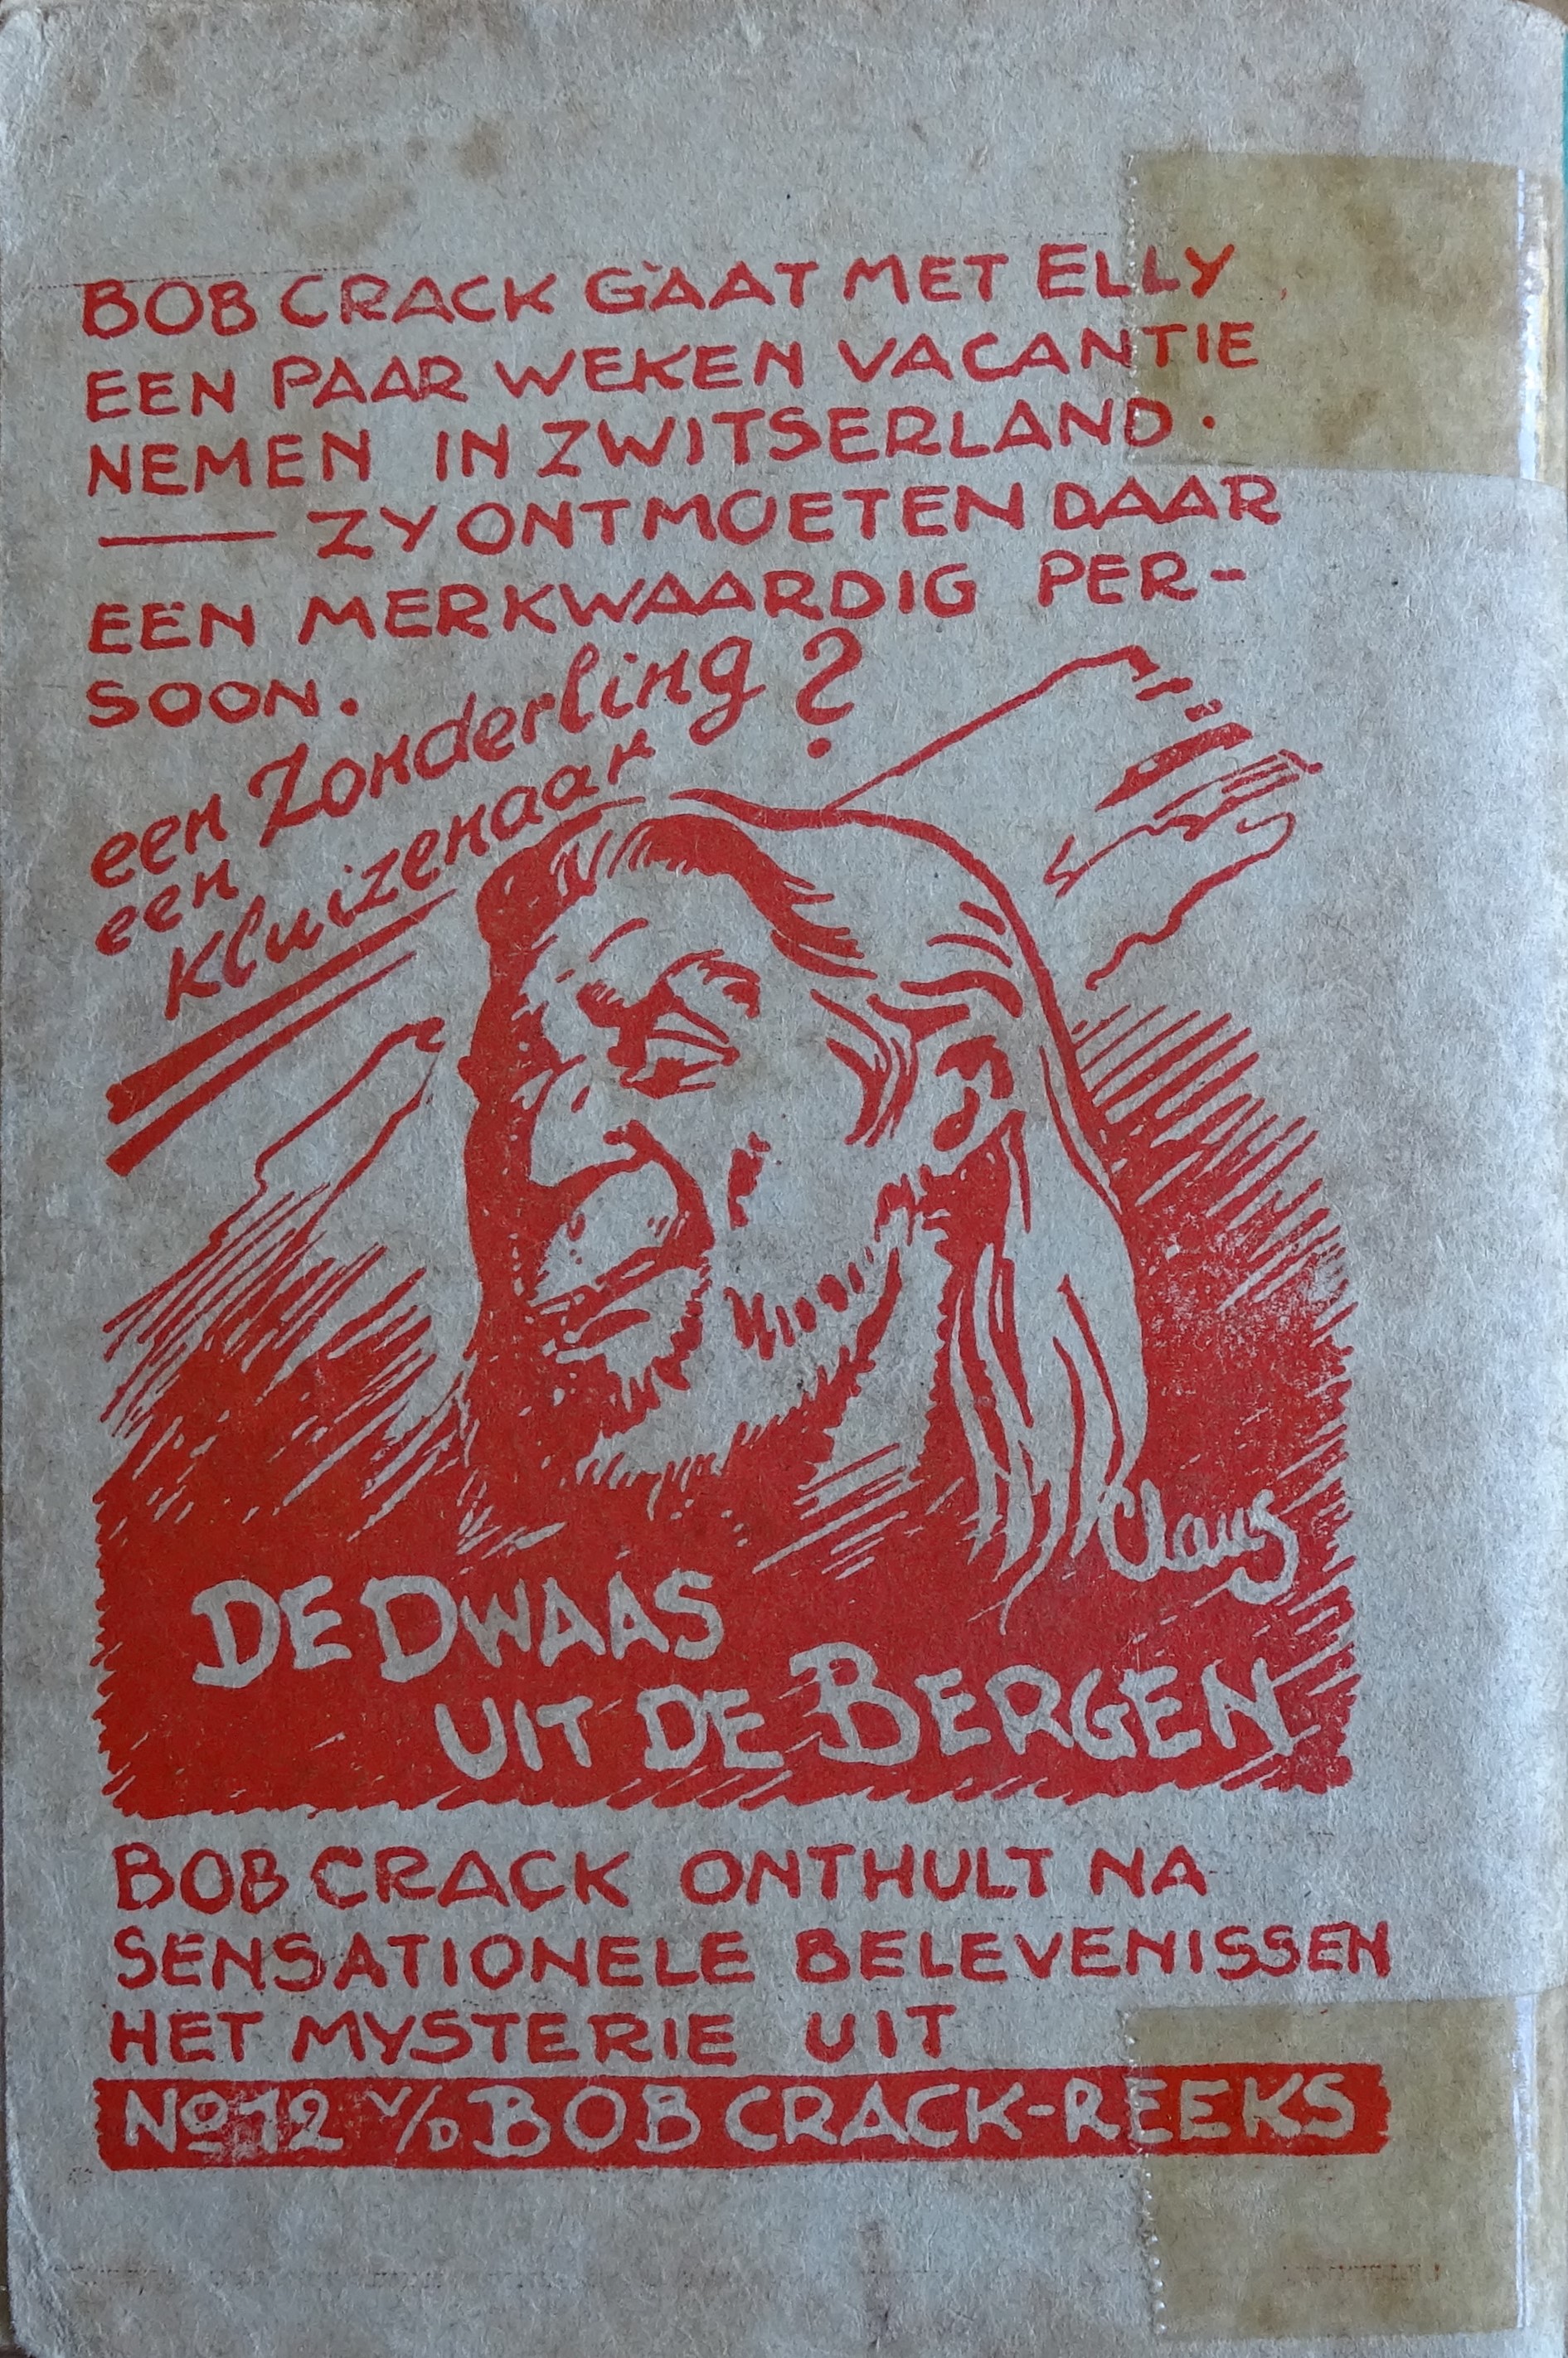 BOB CRACK GAAT MET ELLY
EEN PAAR WEKEN VACANTIE
NEMEN IN ZWITSERLAND.
— ZY ONTMOETEN DAAR
EEN MERKWAARDIG PER-
SOON.
een Zonderling?
een
Kluizenaar
Claus
DE DWAAS
UIT DE BERGEN
BOB CRACK ONTHULT NA
SENSATIONELE BELEVENISSEN
HET MYSTERIE UIT
No 12 V/D BOB CRACK-REEKS